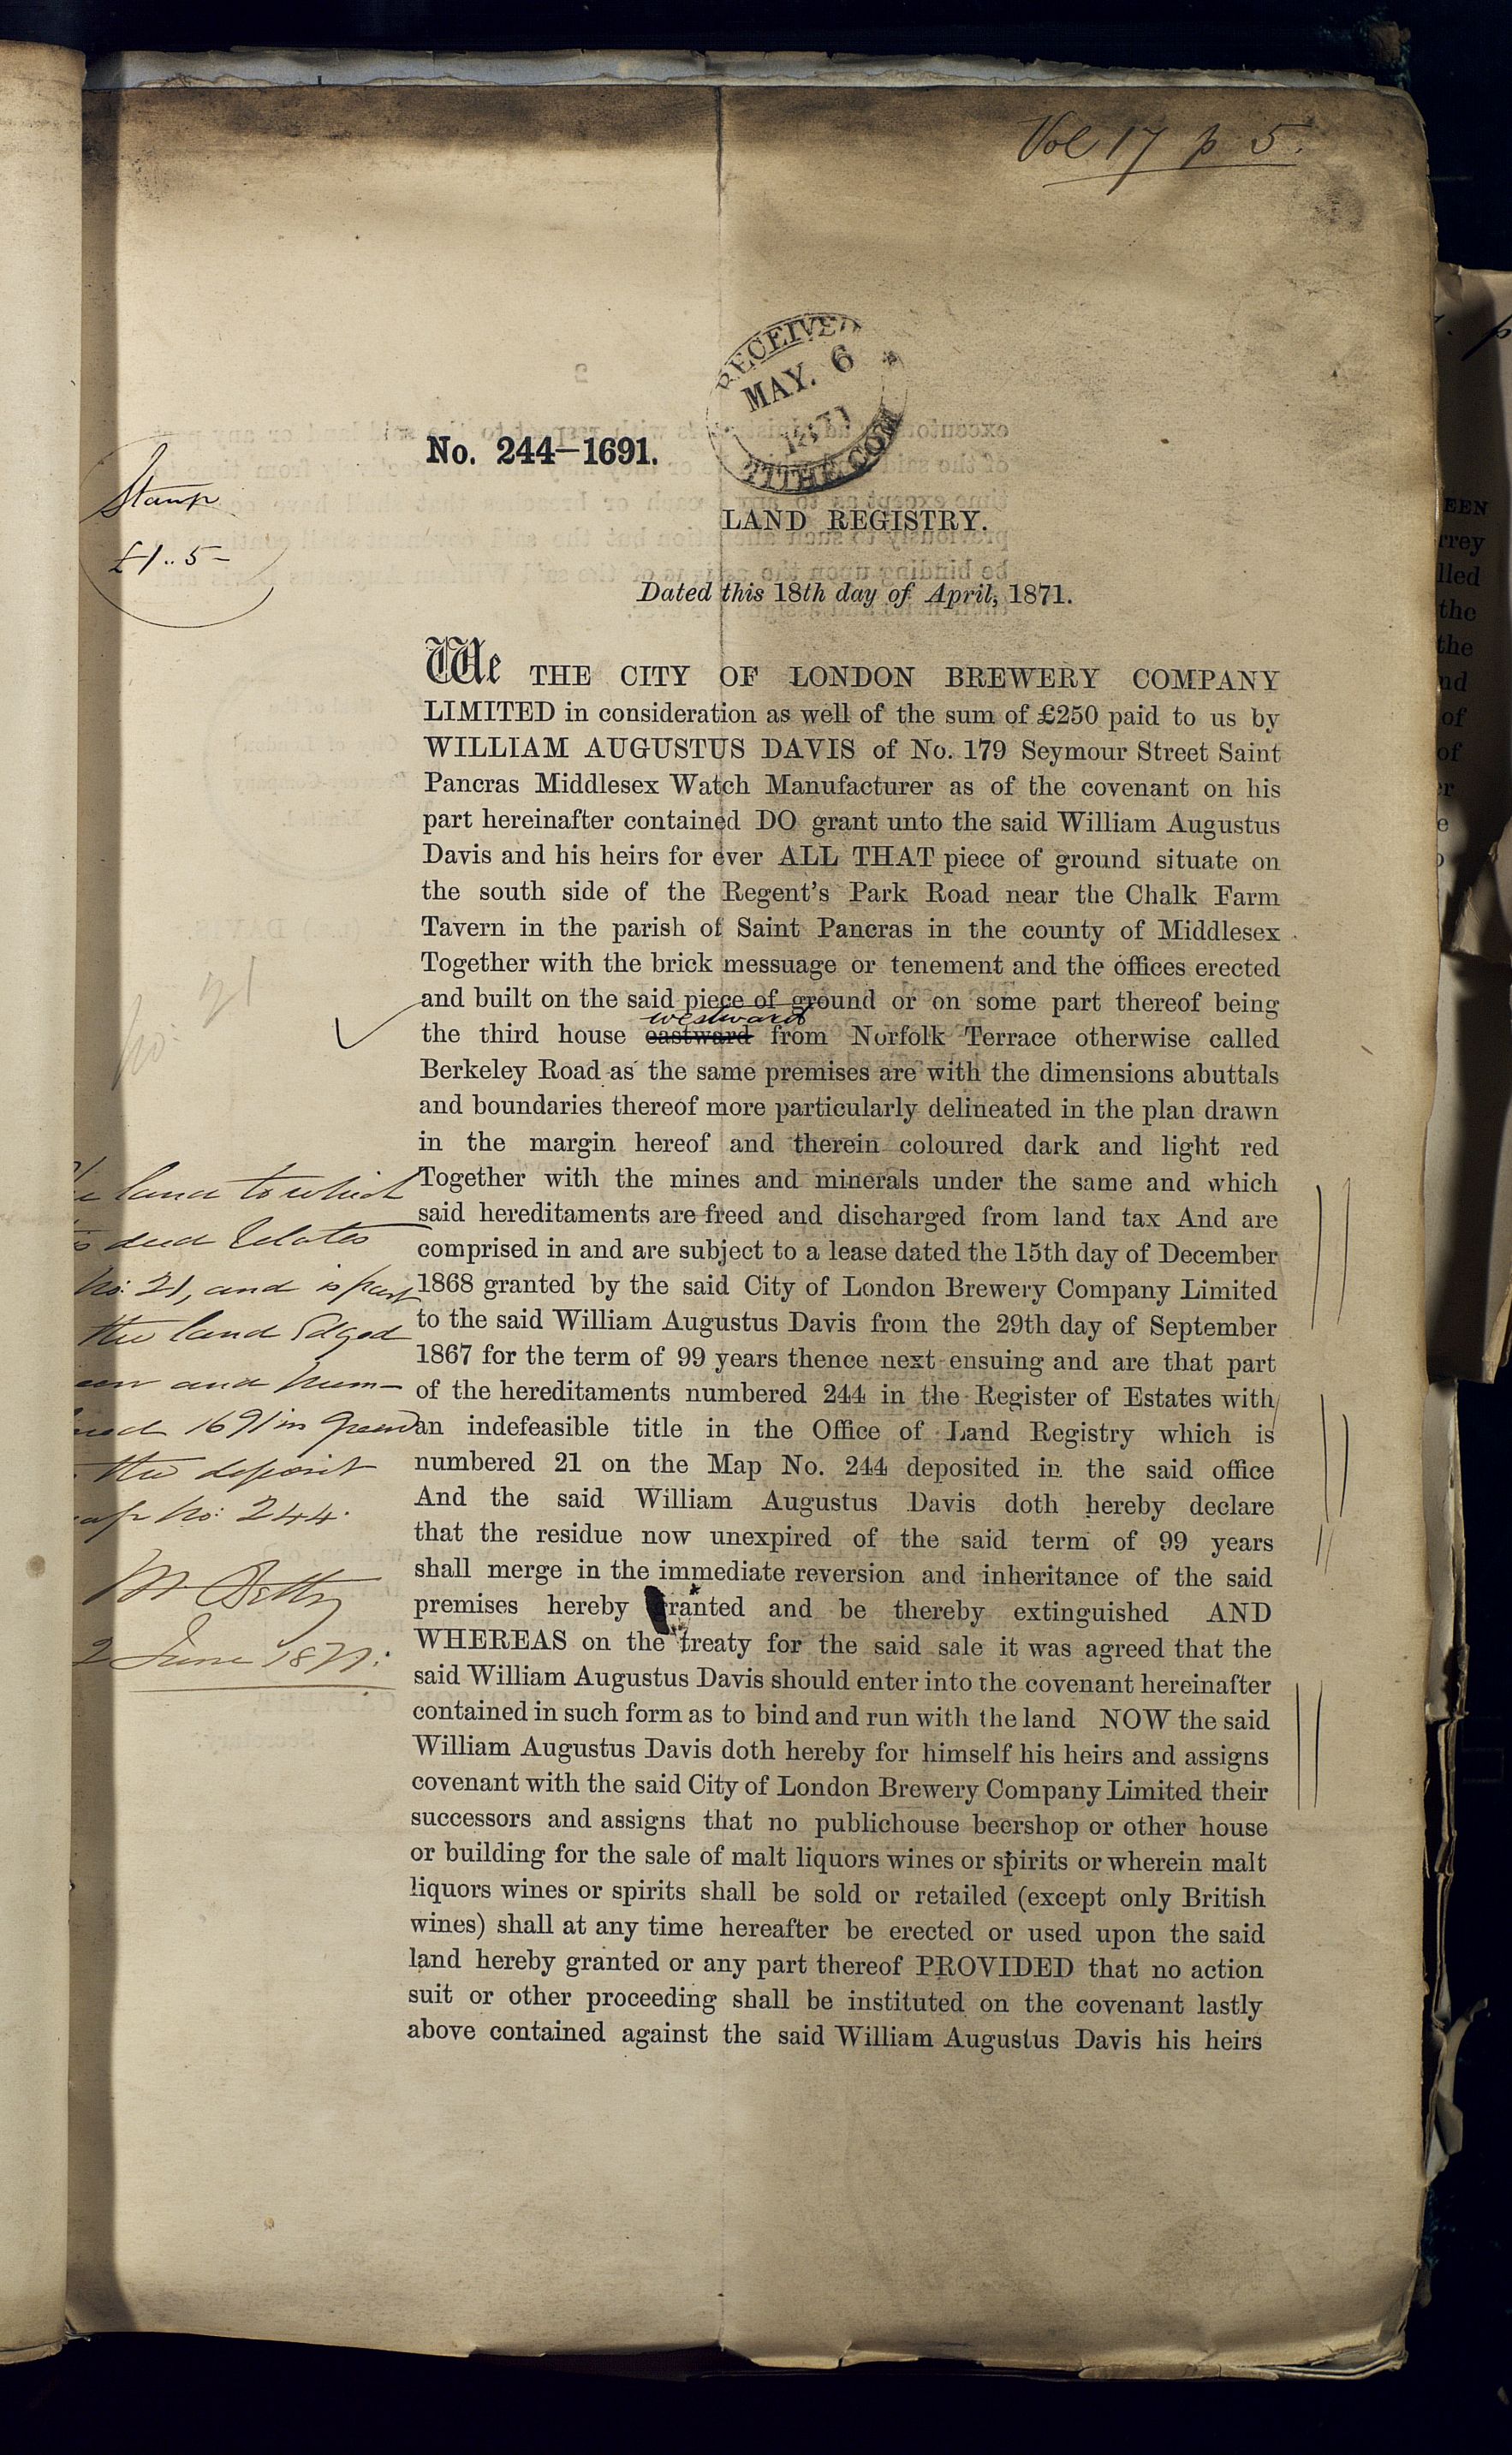 Vol 17 p 5.
RECEIVED
MAY. 6
1871
TITHE COM
No. 244—1691.
Stamp
£1..5–
LAND REGISTRY.
Dated this 18th day of April, 1871.
We THE CITY OF LONDON BREWERY COMPANY
LIMITED in consideration as well of the sum of £250 paid to us by
WILLIAM AUGUSTUS DAVIS of No. 179 Seymour Street Saint
Pancras Middlesex Watch Manufacturer as of the covenant on his
part hereinafter contained DO grant unto the said William Augustus
Davis and his heirs for ever ALL THAT piece of ground situate on
the south side of the Regent's Park Road near the Chalk Farm
Tavern in the parish of Saint Pancras in the county of Middlesex
Together with the brick messuage or tenement and the offices erected
and built on the said piece of ground or on some part thereof being
westward
the third house eastward from Norfolk Terrace otherwise called
Berkeley Road as the same premises are with the dimensions abuttals
and boundaries thereof more particularly delineated in the plan drawn
in the margin hereof and therein coloured dark and light red
Together with the mines and minerals under the same and which
said hereditaments are freed and discharged from land tax And are
comprised in and are subject to a lease dated the 15th day of December
1868 granted by the said City of London Brewery Company Limited
to the said William Augustus Davis from the 29th day of September
1867 for the term of 99 years thence next ensuing and are that part
of the hereditaments numbered 244 in the Register of Estates with
an indefeasible title in the Office of Land Registry which is
numbered 21 on the Map No. 244 deposited in the said office
And the said William Augustus Davis doth hereby declare
that the residue now unexpired of the said term of 99 years
shall merge in the immediate reversion and inheritance of the said
premises hereby granted and be thereby extinguished AND
WHEREAS on the treaty for the said sale it was agreed that the
said William Augustus Davis should enter into the covenant hereinafter
contained in such form as to bind and run with the land NOW the said
William Augustus Davis doth hereby for himself his heirs and assigns
covenant with the said City of London Brewery Company Limited their
successors and assigns that no publichouse beershop or other house
or building for the sale of malt liquors wines or spirits or wherein malt
liquors wines or spirits shall be sold or retailed (except only British
wines) shall at any time hereafter be erected or used upon the said
land hereby granted or any part thereof PROVIDED that no action
suit or other proceeding shall be instituted on the covenant lastly
above contained against the said William Augustus Davis his heirs
No: 21
land to which
deed relates
No: 21, and is part
the land Edged
and num-
1691 in green
the deposit
No: 244.
2 June 1871.
EEN
rrey
lled
the
the
nd
of
of
er
e